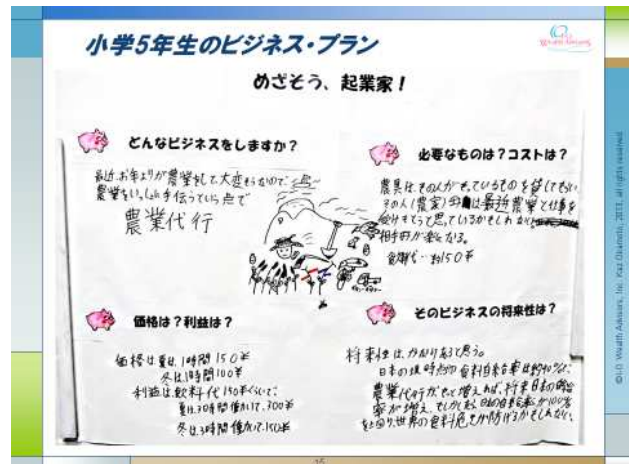 小学5年生のビジネス・プラン
めざそう、起業家！
どんなビジネスをしますか？
最近、お年よりが農業をして、大変そうなので、
農業をいっしょに手伝うという点で
農業代行
必要なものは？コストは？
農具は、その人がもっているものを貸してもらい
その人(農家)は最近農業と仕事を
思っているかもしれない
相手の方が楽になる。
約150¥
価格は？利益は？
価格は夏は、1時間150¥
冬は、1時間100¥
利益は、飲料代150¥くらいで、
夏は、3時間働いて、300¥
冬は、3時間働いて、150¥
そのビジネスの将来性は？
将来性は、かなりあると思う。
日本の現時点の食料自給率は約40%だ、
農業代行がもっと増えれば、将来日本の
家が増え、もしかしたら、日本の自給率が100%
を上回り、世界の食料危機を防げるかもしれない。
©I-O Wealth Advisors, Inc. Kaz Okamoto, 2013, all rights reserved